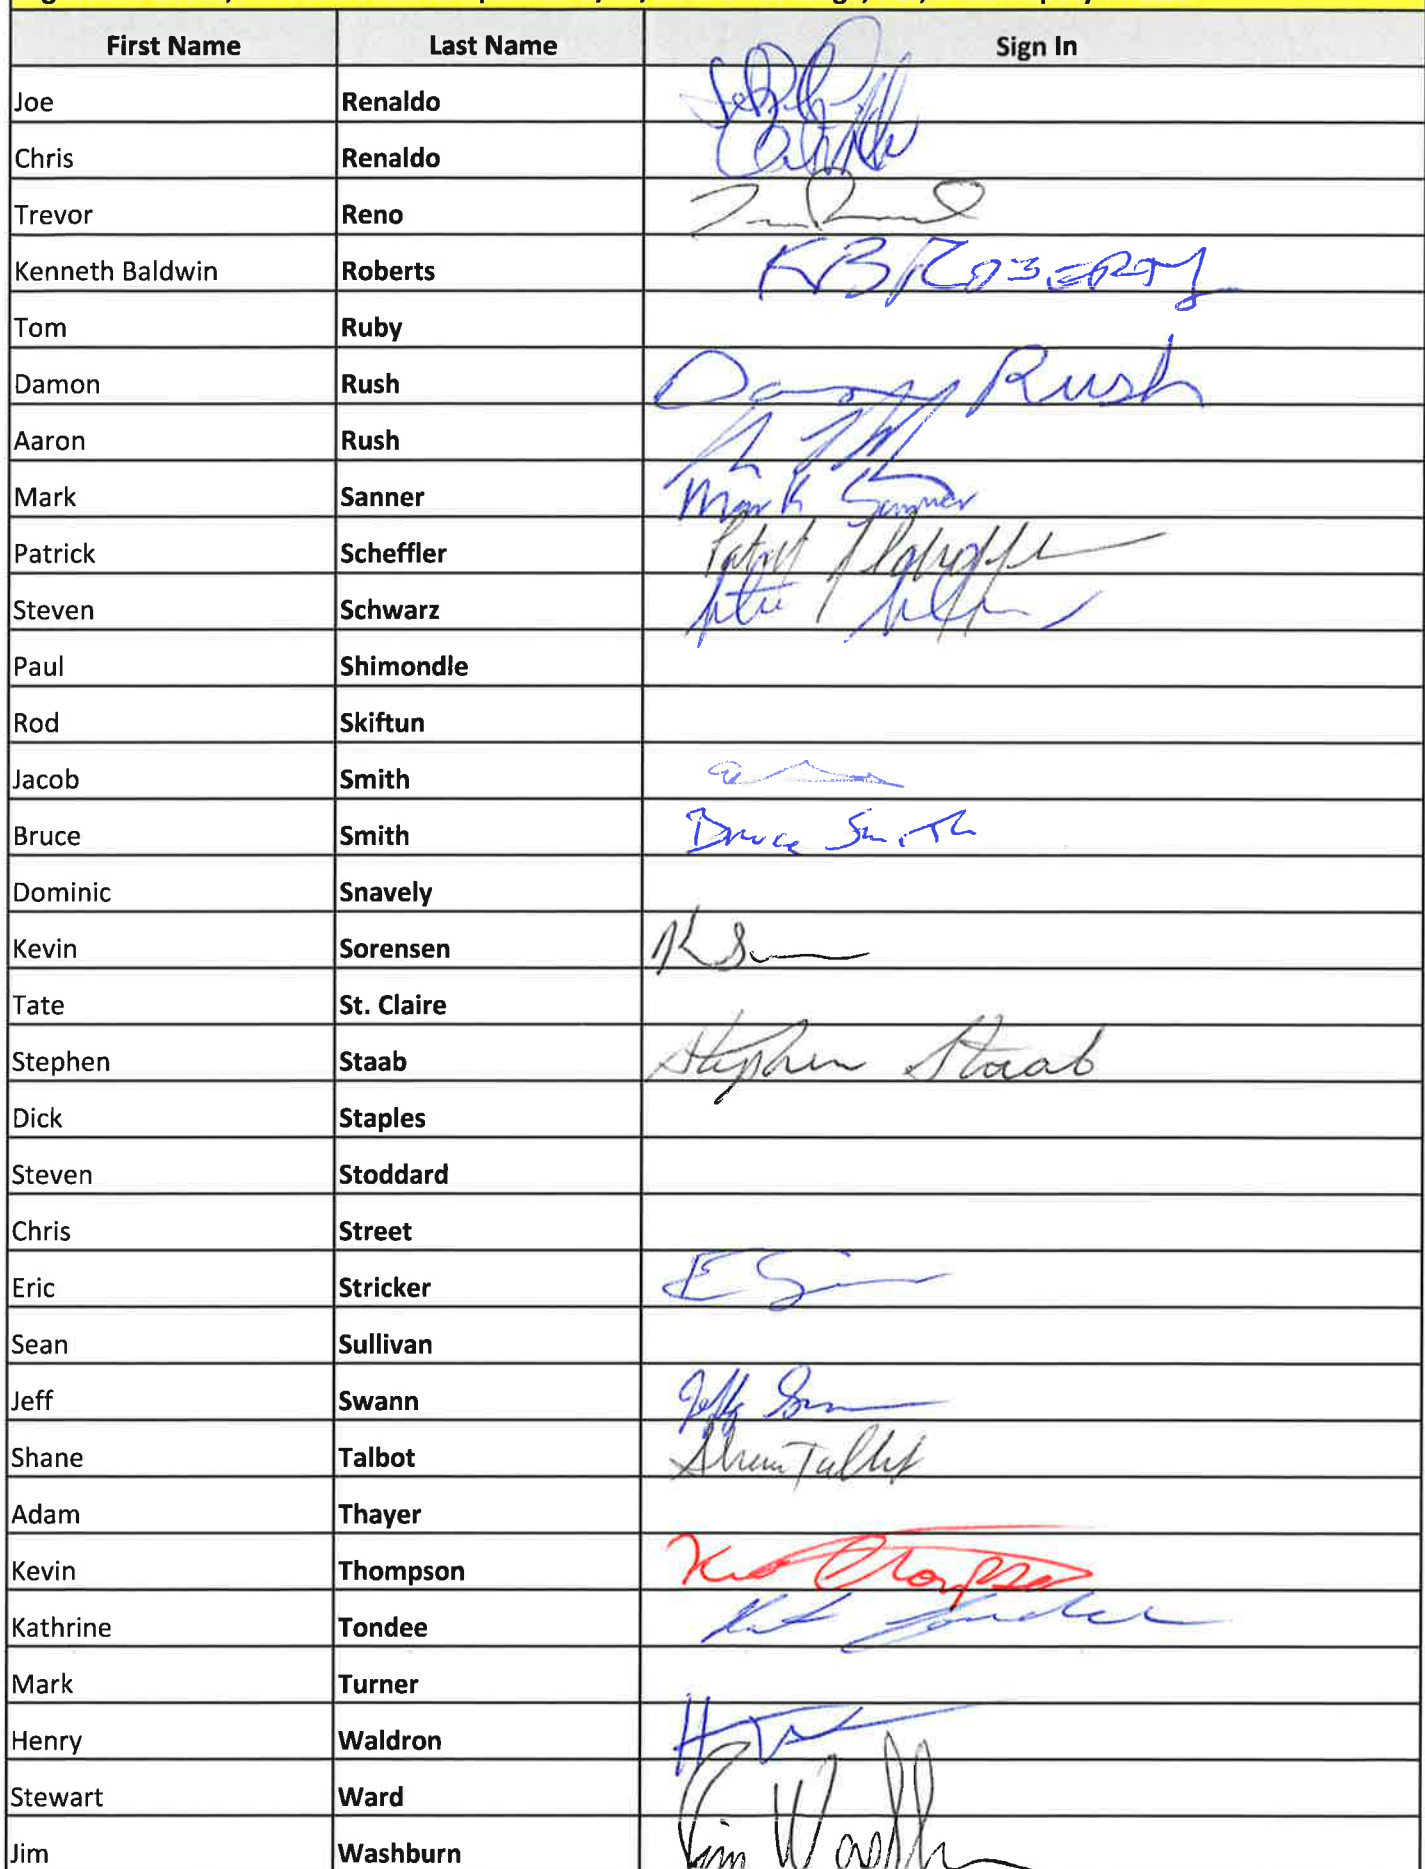 First Name Last Name Sign In
Joe Renaldo
Chris Renaldo
Trevor Reno
Kenneth Baldwin Roberts KB ROBERTS
Tom Ruby
Damon Rush Damon Rush
Aaron Rush
Mark Sanner Mark Sanner
Patrick Scheffler
Steven Schwarz
Paul Shimondle
Rod Skiftun
Jacob Smith
Bruce Smith Bruce Smith
Dominic Snavely
Kevin Sorensen
Tate St. Claire
Stephen Staab Stephen Staab
Dick Staples
Steven Stoddard
Chris Street
Eric Stricker
Sean Sullivan
Jeff Swann
Shane Talbot Shane Talbot
Adam Thayer
Kevin Thompson
Kathrine Tondee
Mark Turner
Henry Waldron
Stewart Ward
Jim Washburn